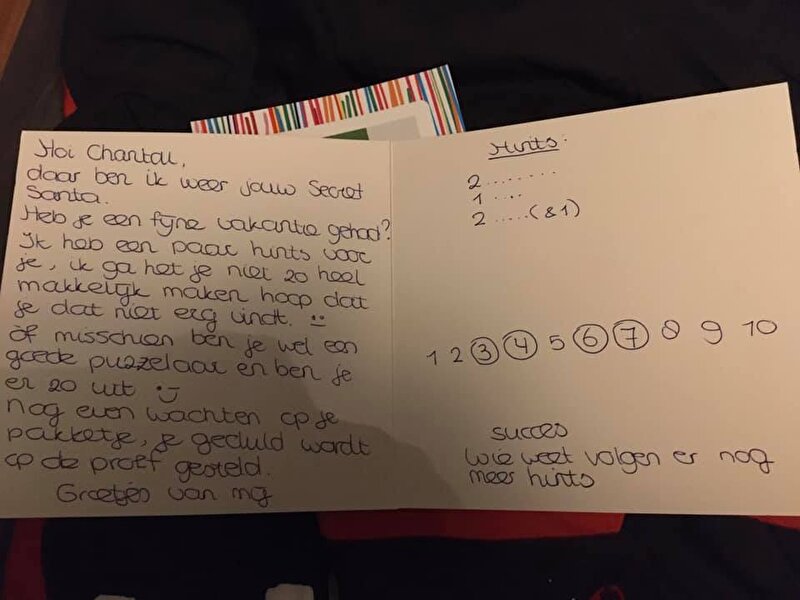 Hoi Chantal,
daar ben ik weer jouw Secret
Santa.
Heb je een fijne vakantie gehad?
Ik heb een paar hints voor
je, ik ga het je niet zo heel
makkelijk maken hoop dat
je dat niet erg vindt. :)
òf misschien ben je wel een
goede puzzelaar en ben je
er zo uit :)
nog even wachten op je
pakketje, je geduld wordt
op de proef gesteld.
Groetjes van mij
Hints:
2 .......
1 ....
2 .....(&1)
1 2 3 4 5 6 7 8 9 10
succes
Wie weet volgen er nog
meer hints